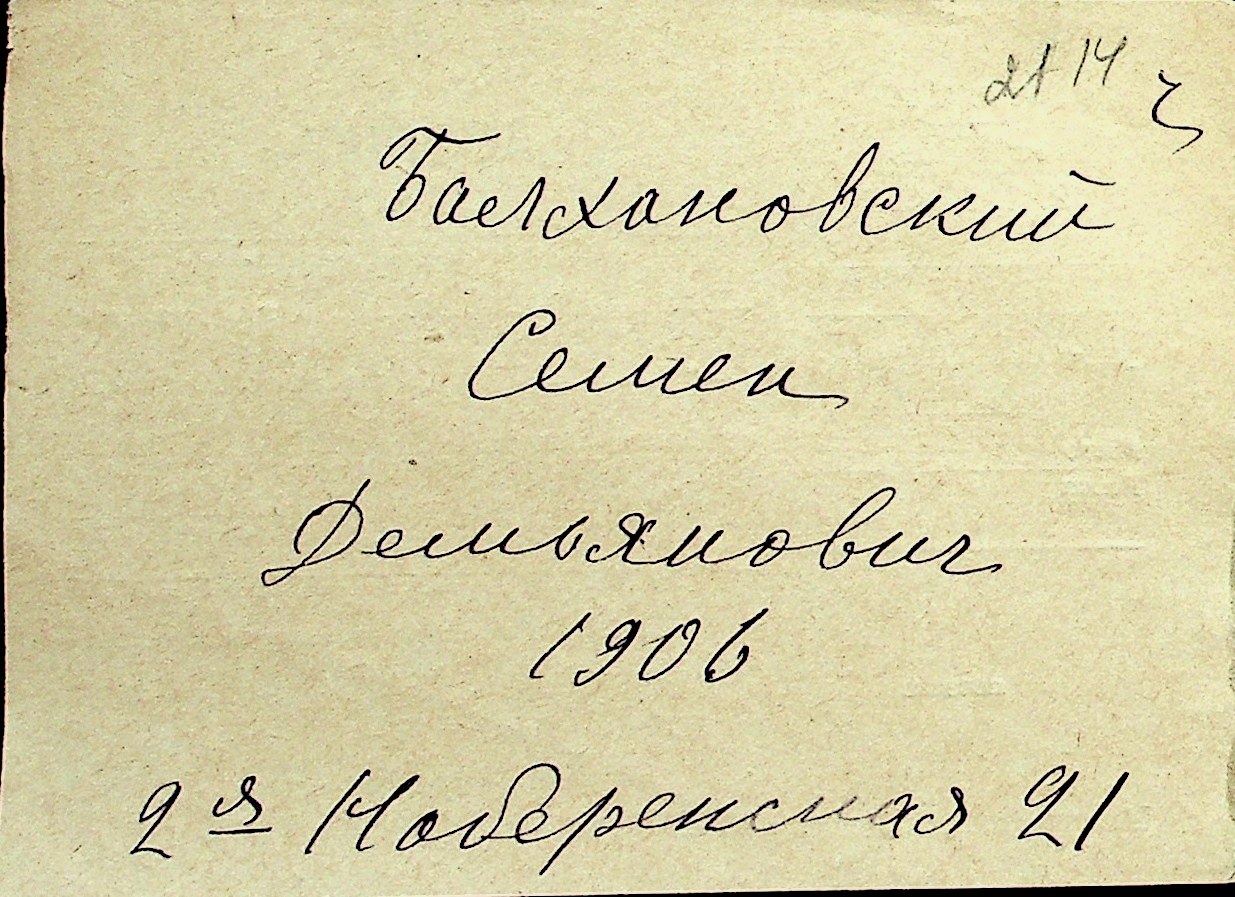 21 14
Балхановский
Семен
Демьянович
1906
2 я Набережная 21